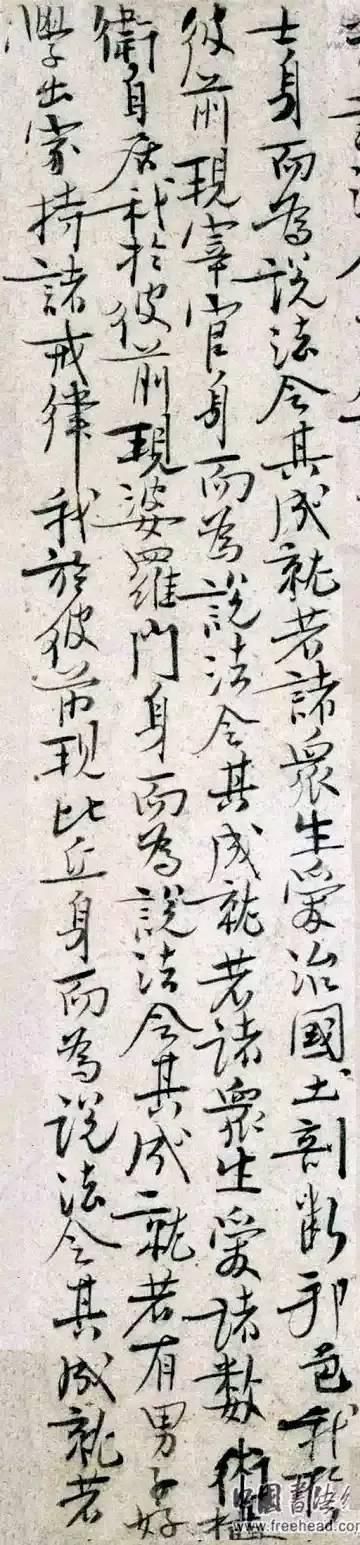 士身而為說法令其成就若諸衆生愛治國土剖斷邦邑我於
彼前現宰官身而為說法令其成就若諸衆生愛諸數術攝
衛自居我於彼前現婆羅門身而為說法令其成就若有男子好
學出家持諸戒律我於彼前現比丘身而為說法令其成就若
www.freehead.com